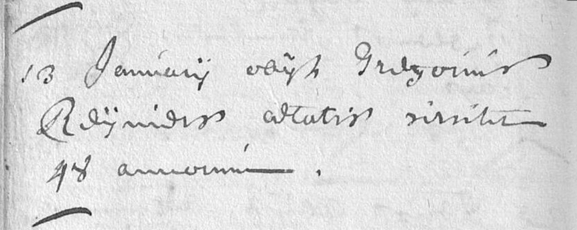 13 Januarij obijt Gregorius
Reijniers aetatis circiter
48 annorum .